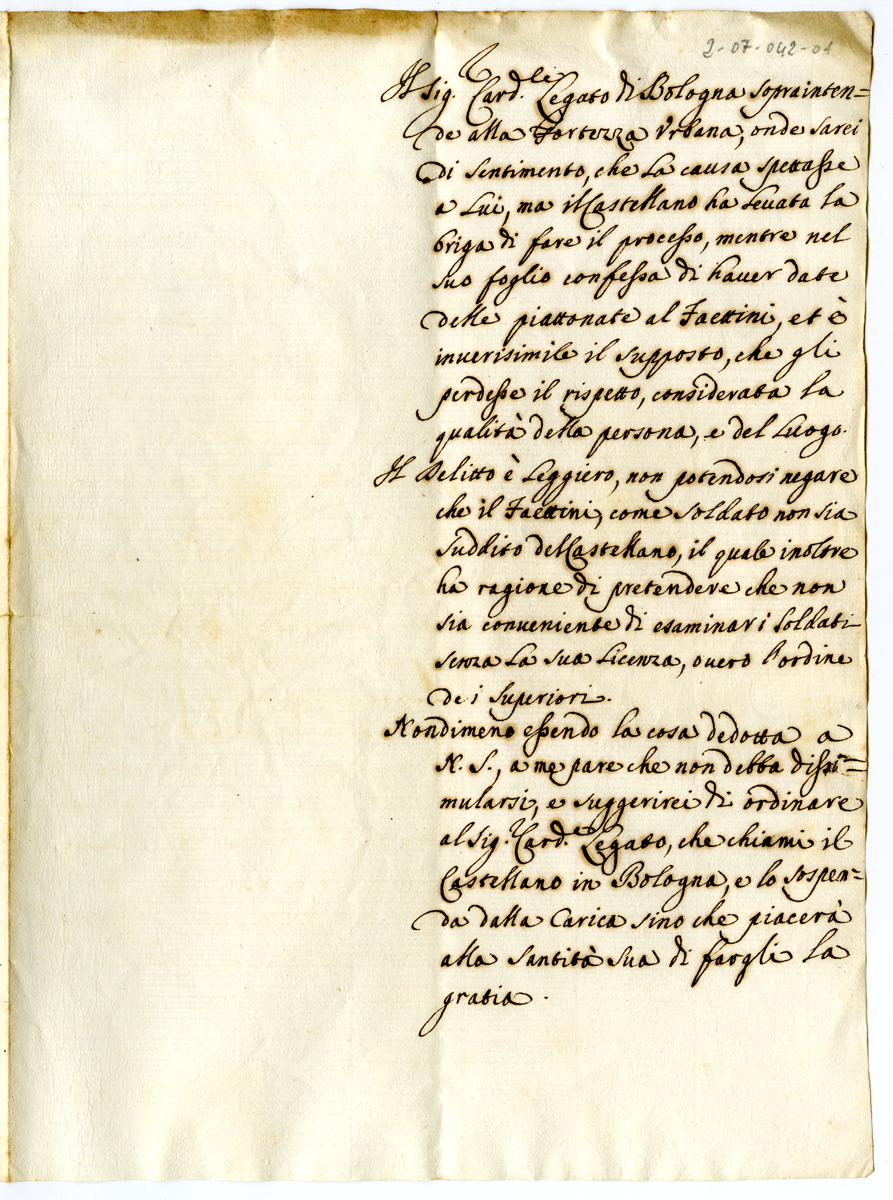 2-07-042-01
Il Sig.r Card.le Legato di Bologna soprainten=
de alla Fortezza Urbana, onde sarei
di sentimento, che la causa spettasse
a Lui, ma il Castellano ha levata la
briga di fare il processo, mentre nel
suo foglio confessa di haver date
delle piattonate al Faettini, et è
inverisimile il supposto, che gli
perdesse il rispetto, considerata la
qualità della persona, e del Luogo.
Il Delitto è Leggiero, non potendosi negare
che il Faettini, come soldato non sia
suddito del Castellano, il quale inoltre
ha ragione di pretendere che non
sia conveniente di esaminar i soldati
senza la sua licenza, overo l'ordine
de i Superiori.
Nondimeno essendo la cosa dedotta a
N. S., a me pare che non debba dissi=
mularsi, e suggerirei di ordinare
al Sig.r Card.e Legato, che chiami il
Castellano in Bologna, e lo sospen=
da dalla Carica sino che piacerà
alla Santità Sua di fargli la
gratia.